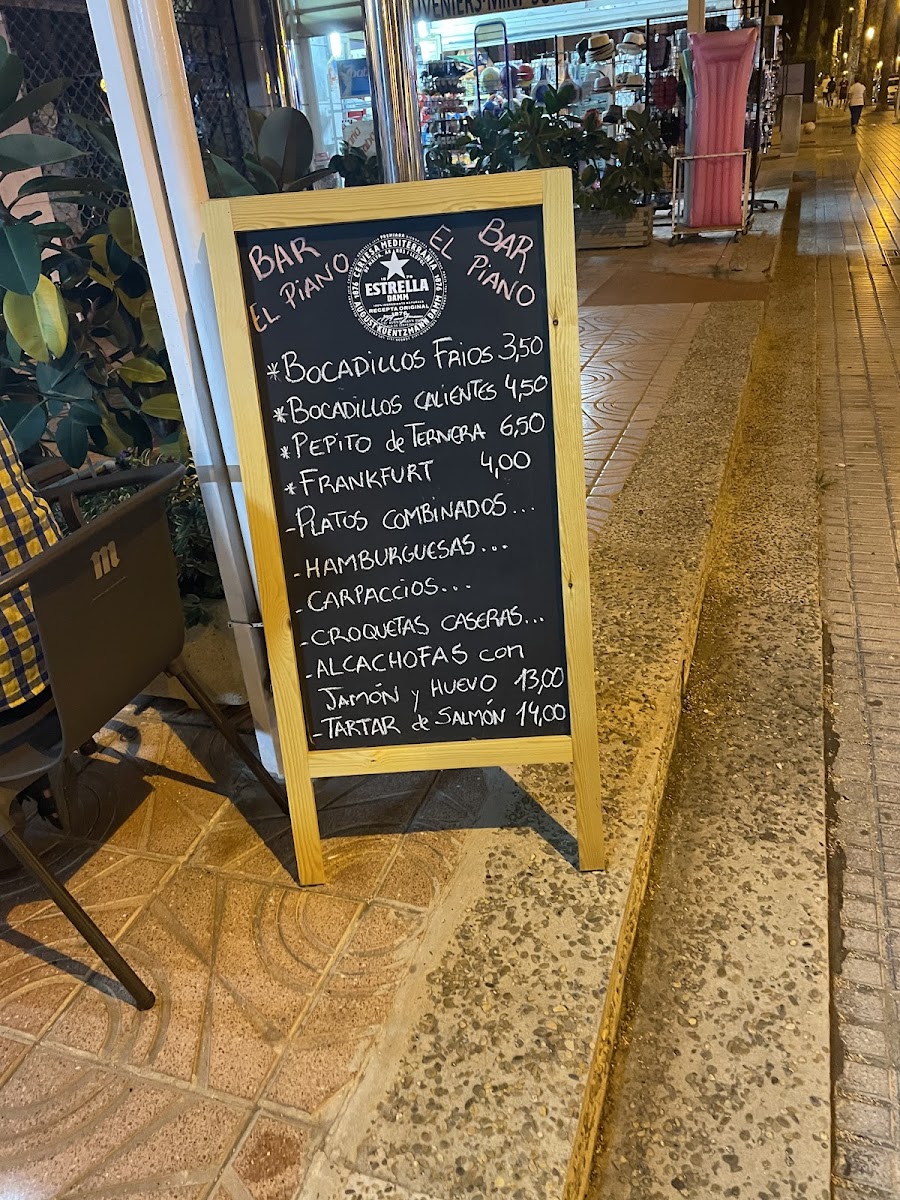 VENIERS·MINI
BAR
EL PIANO
EL BAR
PIANO
CERVESA MEDITERRÀNIA
1876
ESTRELLA
DAMM
RECEPTA ORIGINAL
1876
AUGUST KUENTZMANN DAMM
*BOCADILLOS FRIOS 3,50
*BOCADILLOS CALIENTES 4,50
*PEPITO de TERNERA 6,50
*FRANKFURT 4,00
-PLATOS COMBINADOS...
-HAMBURGUESAS...
-CARPACCIOS...
-CROQUETAS CASERAS...
-ALCACHOFAS con
JAMÓN y HUEVO 13,00
-TARTAR de SALMÓN 14,00
m